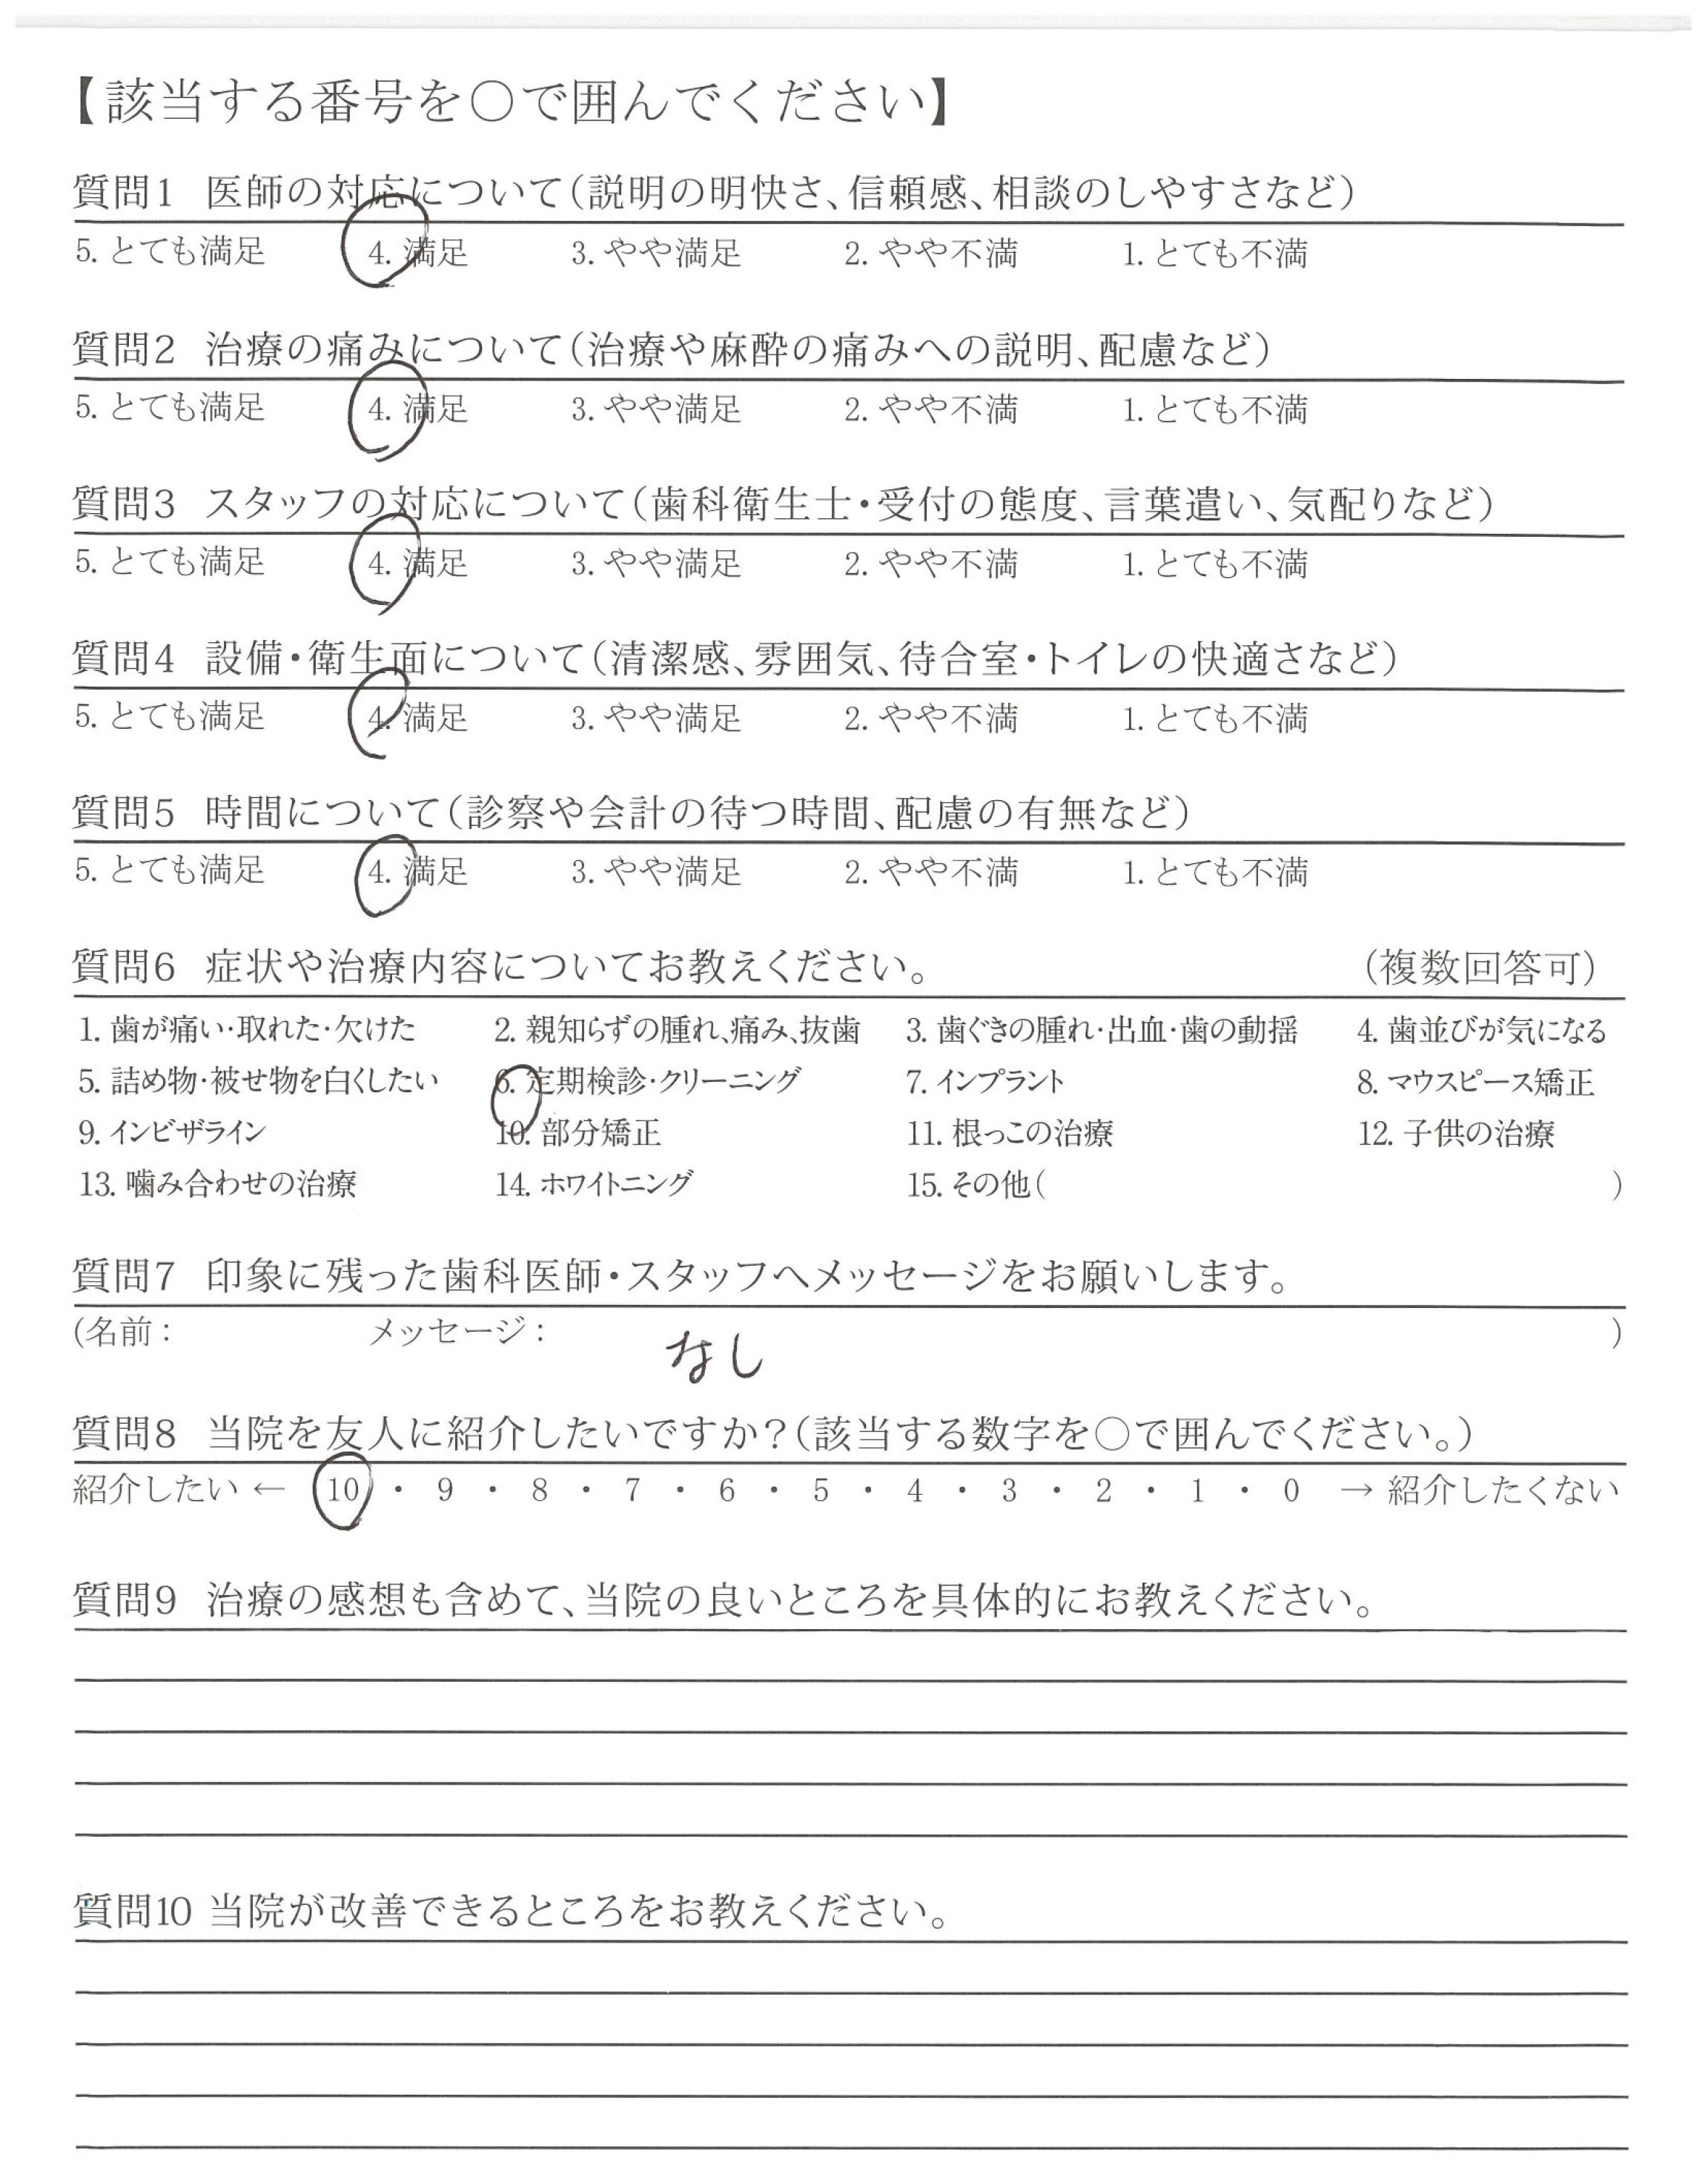 【該当する番号を○で囲んでください】
質問1 医師の対応について（説明の明快さ、信頼感、相談のしやすさなど）
5. とても満足 4. 満足 3. やや満足 2. やや不満 1. とても不満
質問2 治療の痛みについて（治療や麻酔の痛みへの説明、配慮など）
5. とても満足 4. 満足 3. やや満足 2. やや不満 1. とても不満
質問3 スタッフの対応について（歯科衛生士・受付の態度、言葉遣い、気配りなど）
5. とても満足 4. 満足 3. やや満足 2. やや不満 1. とても不満
質問4 設備・衛生面について（清潔感、雰囲気、待合室・トイレの快適さなど）
5. とても満足 4. 満足 3. やや満足 2. やや不満 1. とても不満
質問5 時間について（診察や会計の待つ時間、配慮の有無など）
5. とても満足 4. 満足 3. やや満足 2. やや不満 1. とても不満
質問6 症状や治療内容についてお教えください。 （複数回答可）
1. 歯が痛い・取れた・欠けた 2. 親知らずの腫れ、痛み、抜歯 3. 歯ぐきの腫れ・出血・歯の動揺 4. 歯並びが気になる
5. 詰め物・被せ物を白くしたい 6. 定期検診・クリーニング 7. インプラント 8. マウスピース矯正
9. インビザライン 10. 部分矯正 11. 根っこの治療 12. 子供の治療
13. 噛み合わせの治療 14. ホワイトニング 15. その他（ ）
質問7 印象に残った歯科医師・スタッフへメッセージをお願いします。
(名前： メッセージ： なし )
質問8 当院を友人に紹介したいですか？（該当する数字を○で囲んでください。）
紹介したい ← 10 ・ 9 ・ 8 ・ 7 ・ 6 ・ 5 ・ 4 ・ 3 ・ 2 ・ 1 ・ 0 → 紹介したくない
質問9 治療の感想も含めて、当院の良いところを具体的にお教えください。
質問10 当院が改善できるところをお教えください。